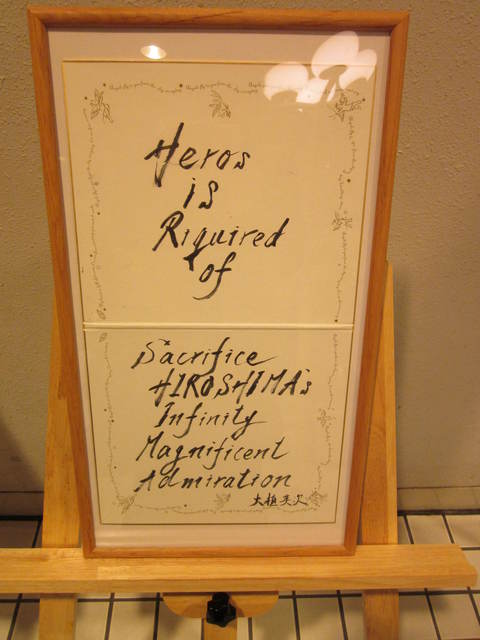 Heros
is
Riquired
of
Sacrifice
HIROSHIMA's
Infinity
Magnificent
Admiration